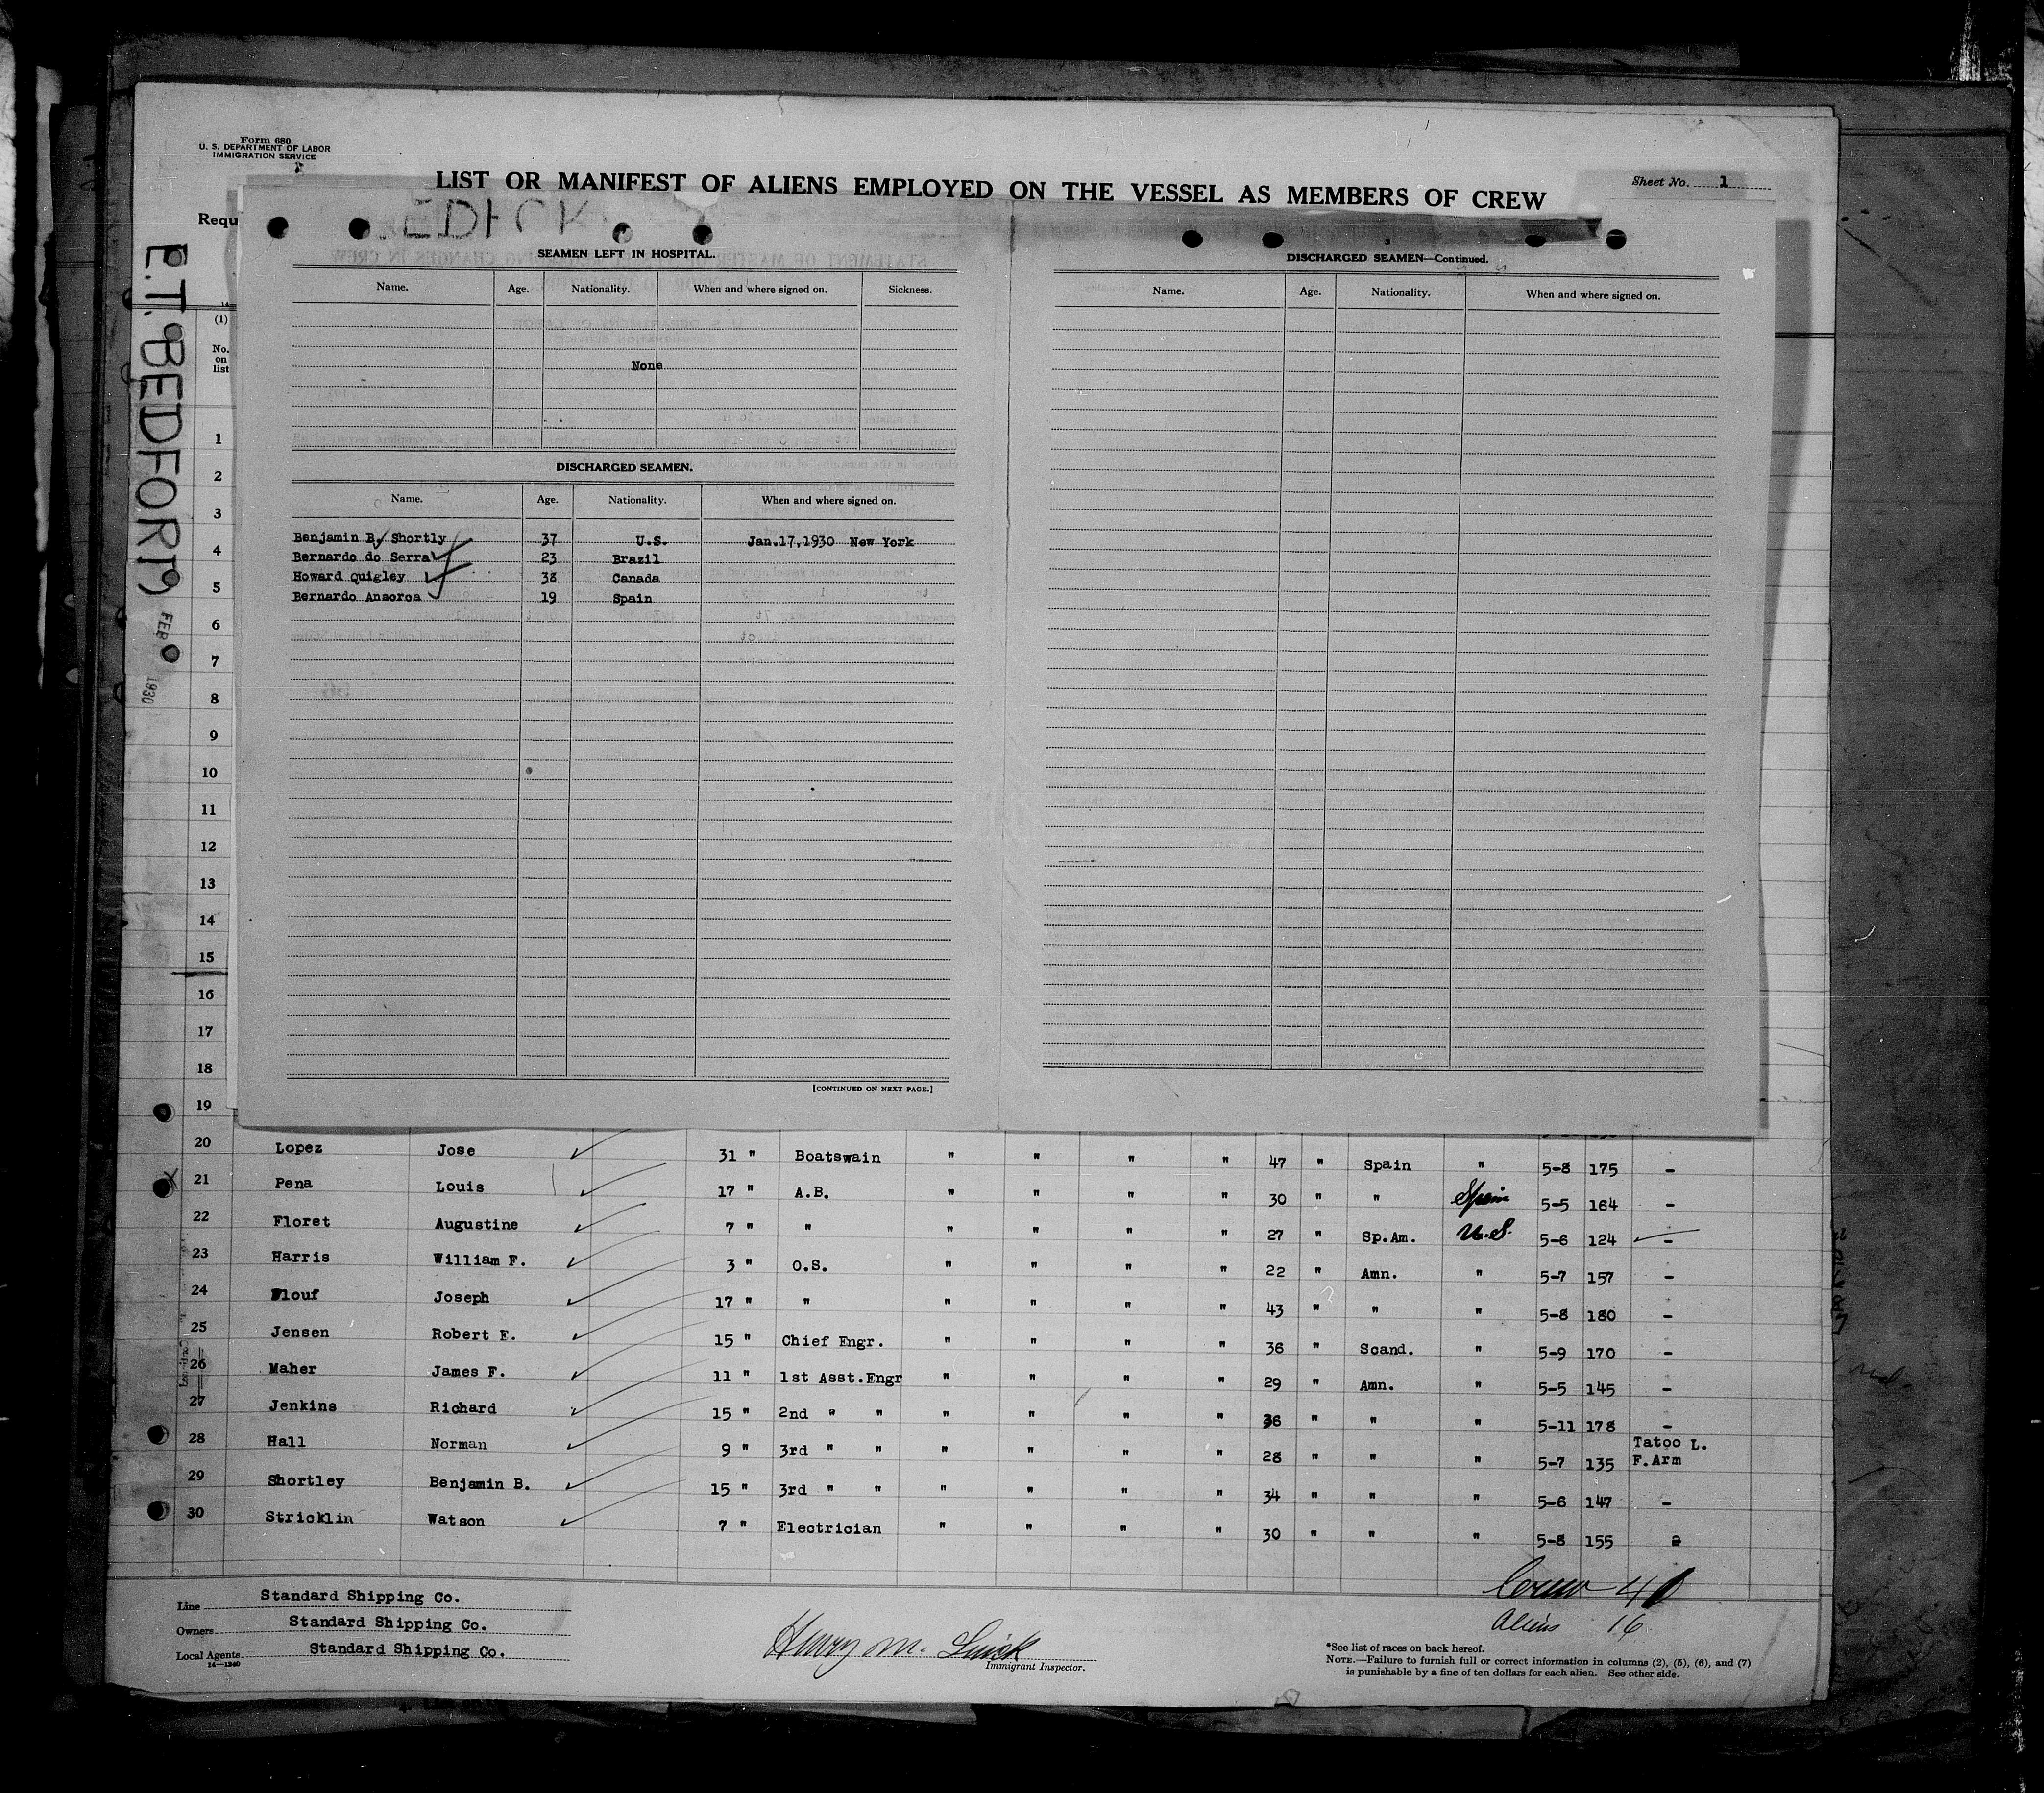 Form 680
U. S. DEPARTMENT OF LABOR
IMMIGRATION SERVICE
LIST OR MANIFEST OF ALIENS EMPLOYED ON THE VESSEL AS MEMBERS OF CREW
Sheet No. 1
Requ
E.T. BEDFORD
FEB
1930
SEAMEN LEFT IN HOSPITAL.
Name. Age. Nationality. When and where signed on. Sickness.
None
DISCHARGED SEAMEN.
Name. Age. Nationality. When and where signed on.
Benjamin B. Shortly 37 U.S. Jan.17,1930 New York
Bernardo do Serra 23 Brazil
Howard Quigley 38 Canada
Bernardo Ansoroa 19 Spain
[CONTINUED ON NEXT PAGE.]
3
DISCHARGED SEAMEN—Continued.
Name. Age. Nationality. When and where signed on.
14
(1)
No.
on
list
1
2
3
4
5
6
7
8
9
10
11
12
13
14
15
16
17
18
19
20 Lopez Jose 31 " Boatswain " " " " 47 " Spain " 5-8 175 -
21 Pena Louis 17 " A.B. " " " " 30 " " Spain 5-5 164 -
22 Floret Augustine 7 " " " " " " 27 " Sp.Am. U.S. 5-6 124 -
23 Harris William F. 3 " O.S. " " " " 22 " Amn. " 5-7 157 -
24 Plouf Joseph 17 " " " " " " 43 " " " 5-8 180 -
25 Jensen Robert E. 15 " Chief Engr. " " " " 36 " Scand. " 5-9 170 -
26 Maher James F. 11 " 1st Asst.Engr " " " " 29 " Amn. " 5-5 145 -
27 Jenkins Richard 15 " 2nd " " " " " " 36 " " " 5-11 178 -
28 Hall Norman 9 " 3rd " " " " " " 28 " " " 5-7 135 Tatoo L. F.Arm
29 Shortley Benjamin B. 15 " 3rd " " " " " " 34 " " " 5-6 147 -
30 Stricklin Watson 7 " Electrician " " " " 30 " " " 5-8 155
Crew 40
Aliens 16
Line Standard Shipping Co.
Owners Standard Shipping Co.
Local Agents Standard Shipping Co.
14—1240
Henry M.
Immigrant Inspector.
*See list of races on back hereof.
NOTE.—Failure to furnish full or correct information in columns (2), (5), (6), and (7)
is punishable by a fine of ten dollars for each alien. See other side.